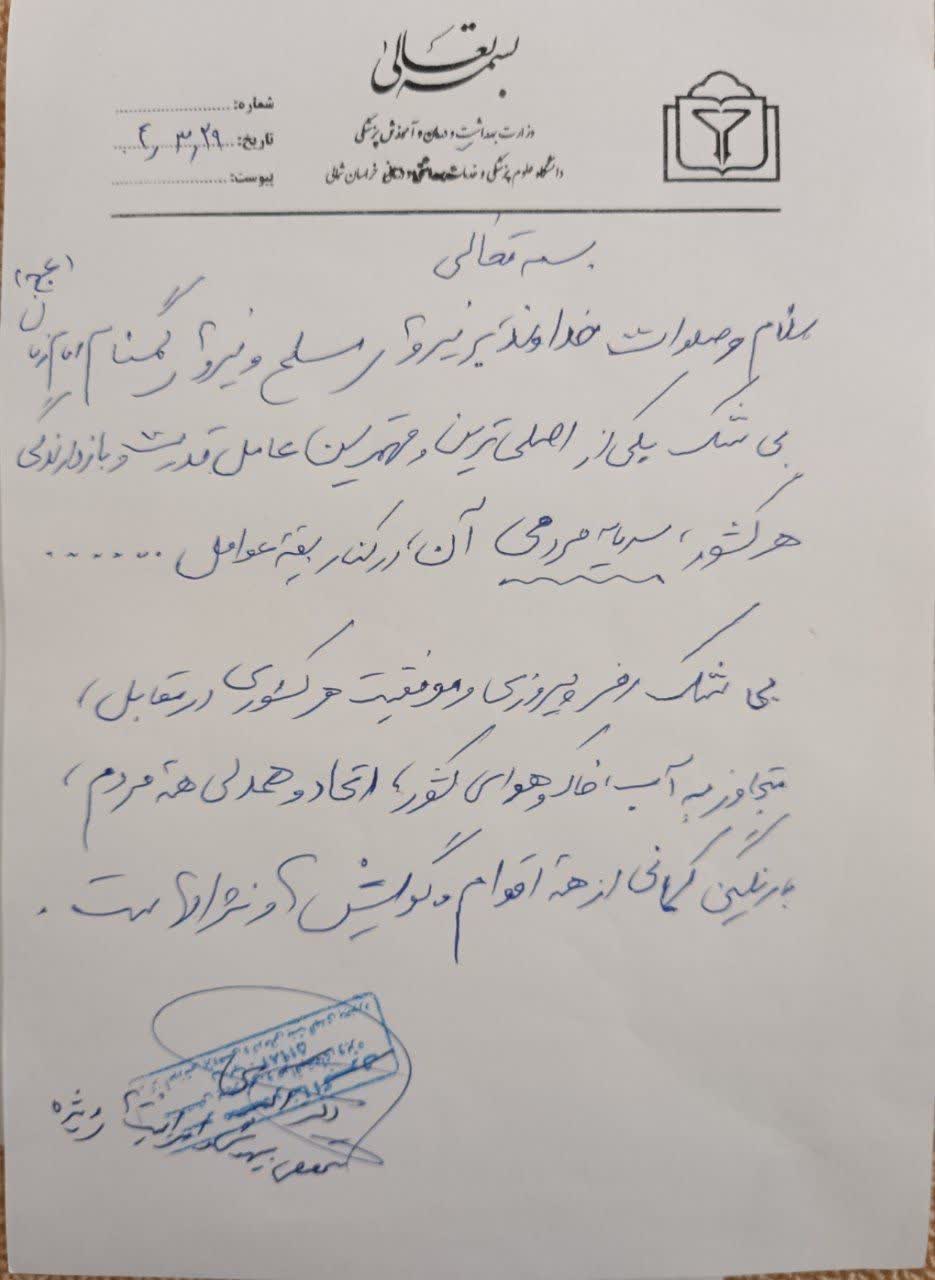 بسمه تعالی
وزارت بهداشت و درمان و آموزش پزشکی
دانشگاه علوم پزشکی و خدمات بهداشتی و درمانی خراسان شمالی
شماره:
تاریخ: ۴٫۳٫۲۹
پیوست:
بسمه تعالی
سلام و صلوات خداوند بر نیروهای مسلح و نیروهای گمنام امام زمان (عج)
بی شک یکی از اصلی ترین و مهمترین عامل قدرت و بازدارندگی
هر کشور، سرمایه مردمی آن، در کنار بقیه عوامل ........
بی شک رمز پیروزی و موفقیت هر کشوری در مقابل،
متجاوز به آب، خاک و هوای کشور، اتحاد و همدلی همۀ مردم،
با رنگین کمانی از همۀ اقوام و گویش ها و نژادهاست.
دکتر
متخصص بیهوشی و مراقبتهای ویژه